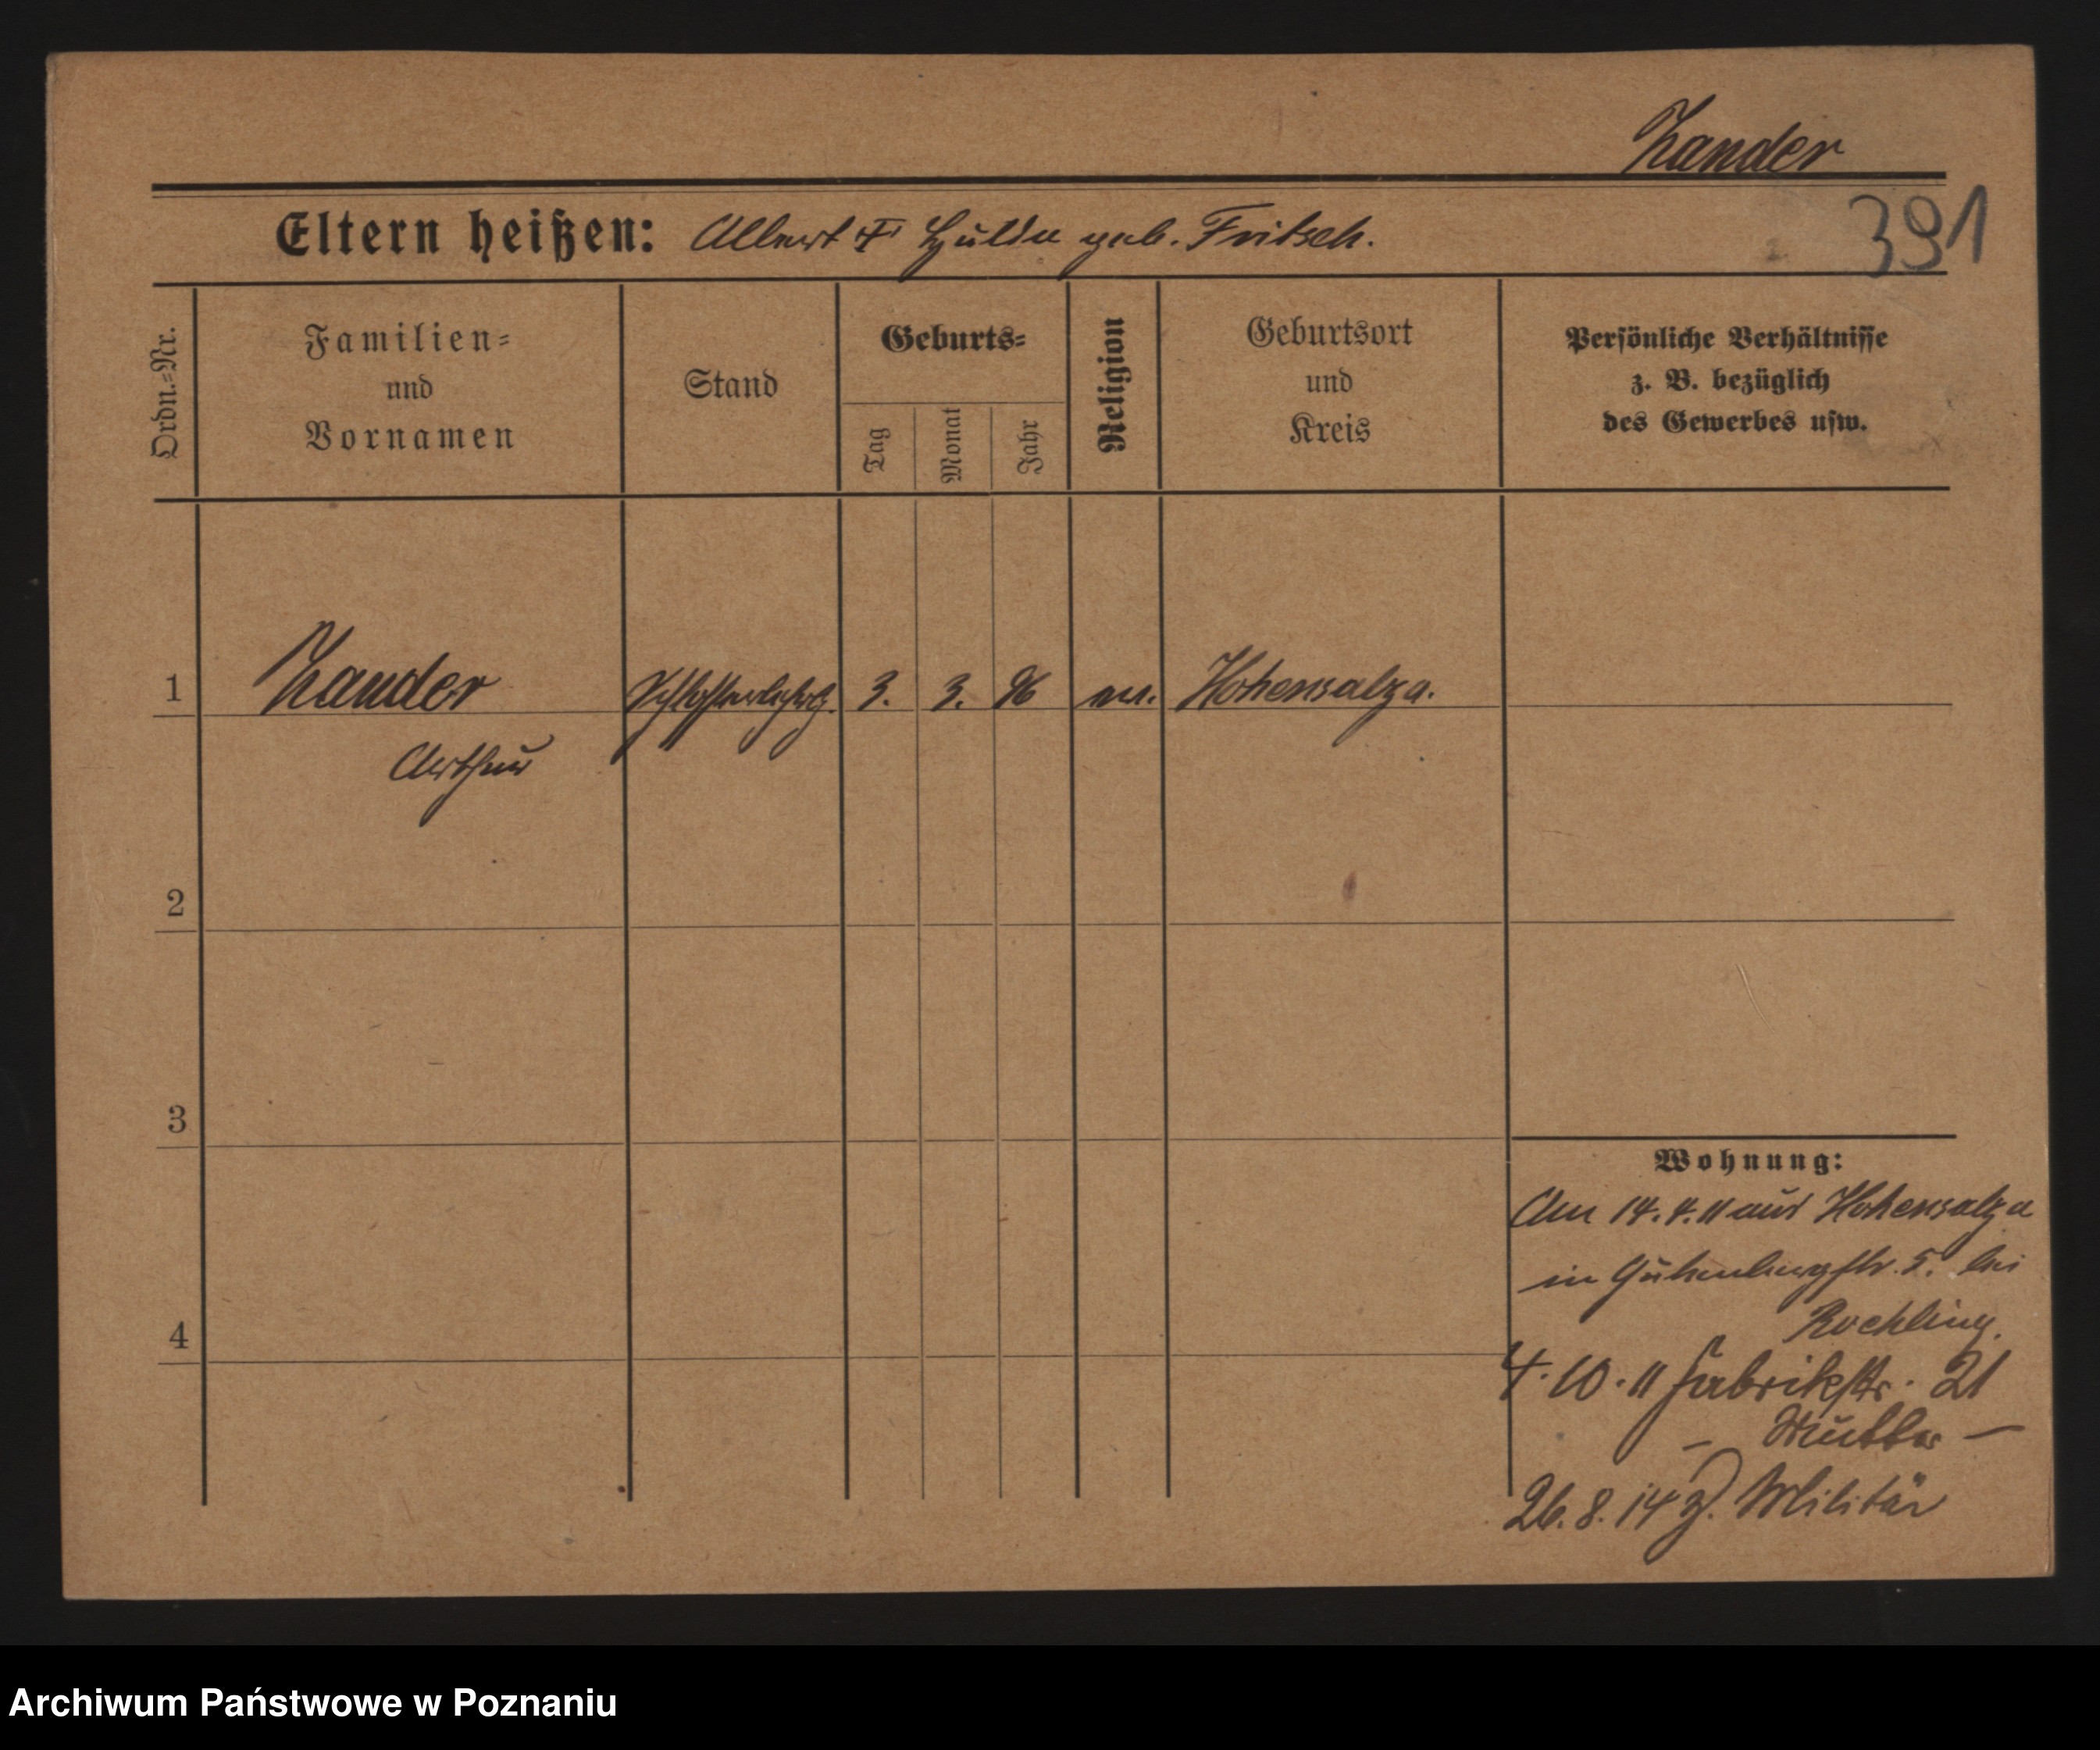 Zander
391
Eltern heißen: Albert ✝ Hulda geb. Fritsch.
Ordn.=Nr.
Familien=
und
Vornamen
Stand
Geburts=
Tag
Monat
Jahr
Religion
Geburtsort
und
Kreis
Persönliche Verhältnisse
z. B. bezüglich
des Gewerbes usw.
1
Zander Schlosserlehrlg. 3. 3. 96 ev. Hohensalza.
Arthur
2
3
4
Wohnung:
Am 14.4.11 aus Hohensalza
in Gutenbergstr. 5. bei
Rochling.
4.10.11 Fabrikstr. 21
– Mutter –
26.8.14 z. Militär
Archiwum Państwowe w Poznaniu